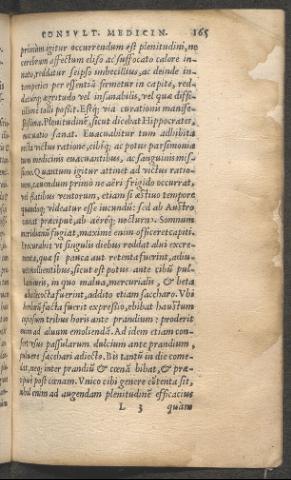 CONSVLT. MEDICIN. 165
primùm igitur occurrendum est plenitudini, ne
cerebrum affectum eliso ac suffocato calore in-
nato, reddatur seipso imbecillius, ac deinde in-
temperies per essentiā firmetur in capite, red-
datúrq; ægritudo vel insanabilis, vel quæ diffi-
cillimè tolli possit. Estq; via curationis manife-
stissima. Plenitudinē, sicut dicebat Hippocrates,
euacuatio sanat. Euacuabitur tum adhibita
victus ratione, cibíq; ac potus parsimonia
tum medicinis euacuantibus, ac sanguinis mis-
sione. Quantum igitur attinet ad victus ratio-
nem, cauendum primò ne aëri frigido occurrat,
vel flatibus ventorum, etiam si æstiuo tempore
quandoq; videatur esse iucundū: sed ab Austro
caueat præcipuè, ab aëréq; nocturno. Somnum
meridianū fugiat, maximè enim officeret capiti.
Procurabit vt singulis diebus reddat alui excre-
menta, quæ si pauca aut retenta fuerint, adiu-
uet mollientibus, sicut est potus ante cibū pul-
in quo malua, mercurialis, & beta
cocta fuerint, addito etiam saccharo. Vbi
facta fuerit expressio, ebibat haustum
tribus horis ante prandium: proderit
enim ad aluum emoliendā. Ad idem etiam con-
passularum dulcium ante prandium,
puluere sacchari adiecto. Bis tantū in die come-
dat, neq; inter prandiū & cœnā bibat, & præ-
post cœnam. Vnico cibi genere cōtenta sit,
nihil enim ad augendam plenitudinē efficacius
L 3 quàm